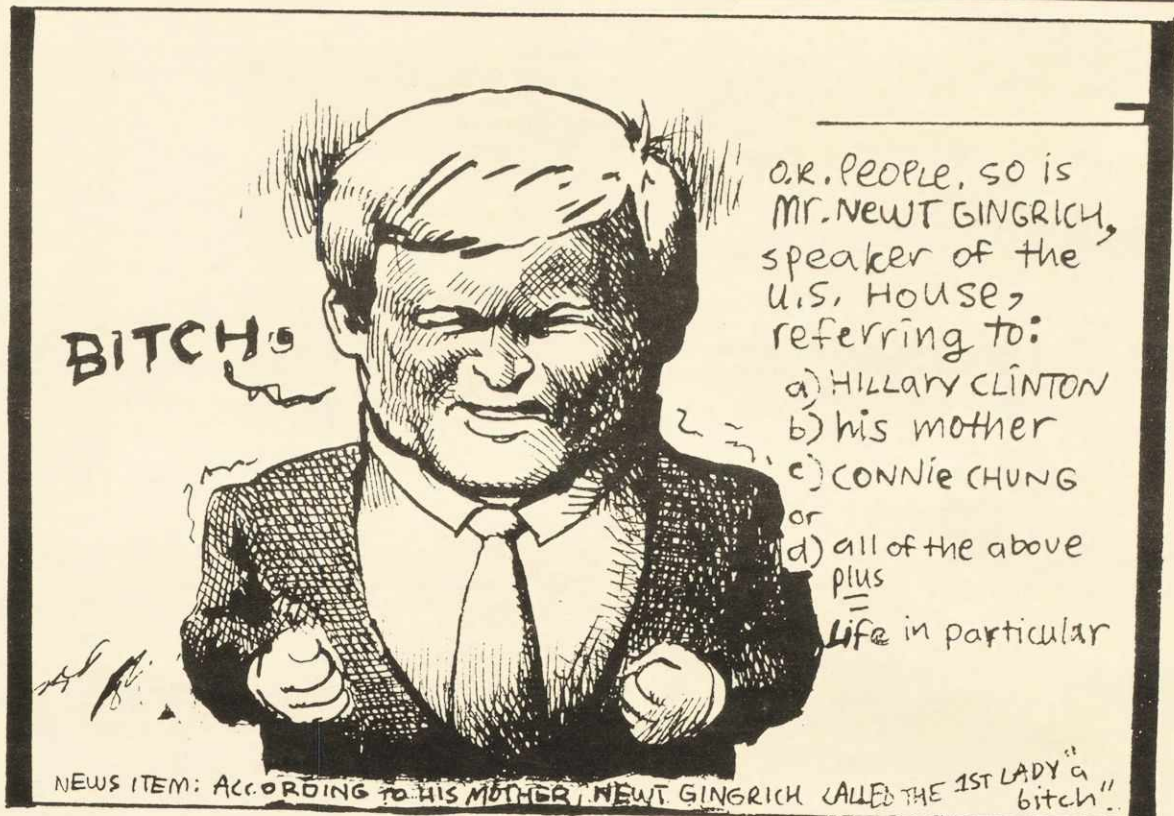 BITCH.
O.K. PEOPLE. SO is
Mr. NEWT GINGRICH,
speaker of the
U.S. HOUSE,
referring to:
a) HILLARY CLINTON
b) his mother
c) CONNie CHUNG
or
d) all of the above
plus
Life in particular
NEWS ITEM: ACCORDING TO HIS MOTHER, NEWT GINGRICH CALLED THE 1ST LADY "a
bitch".